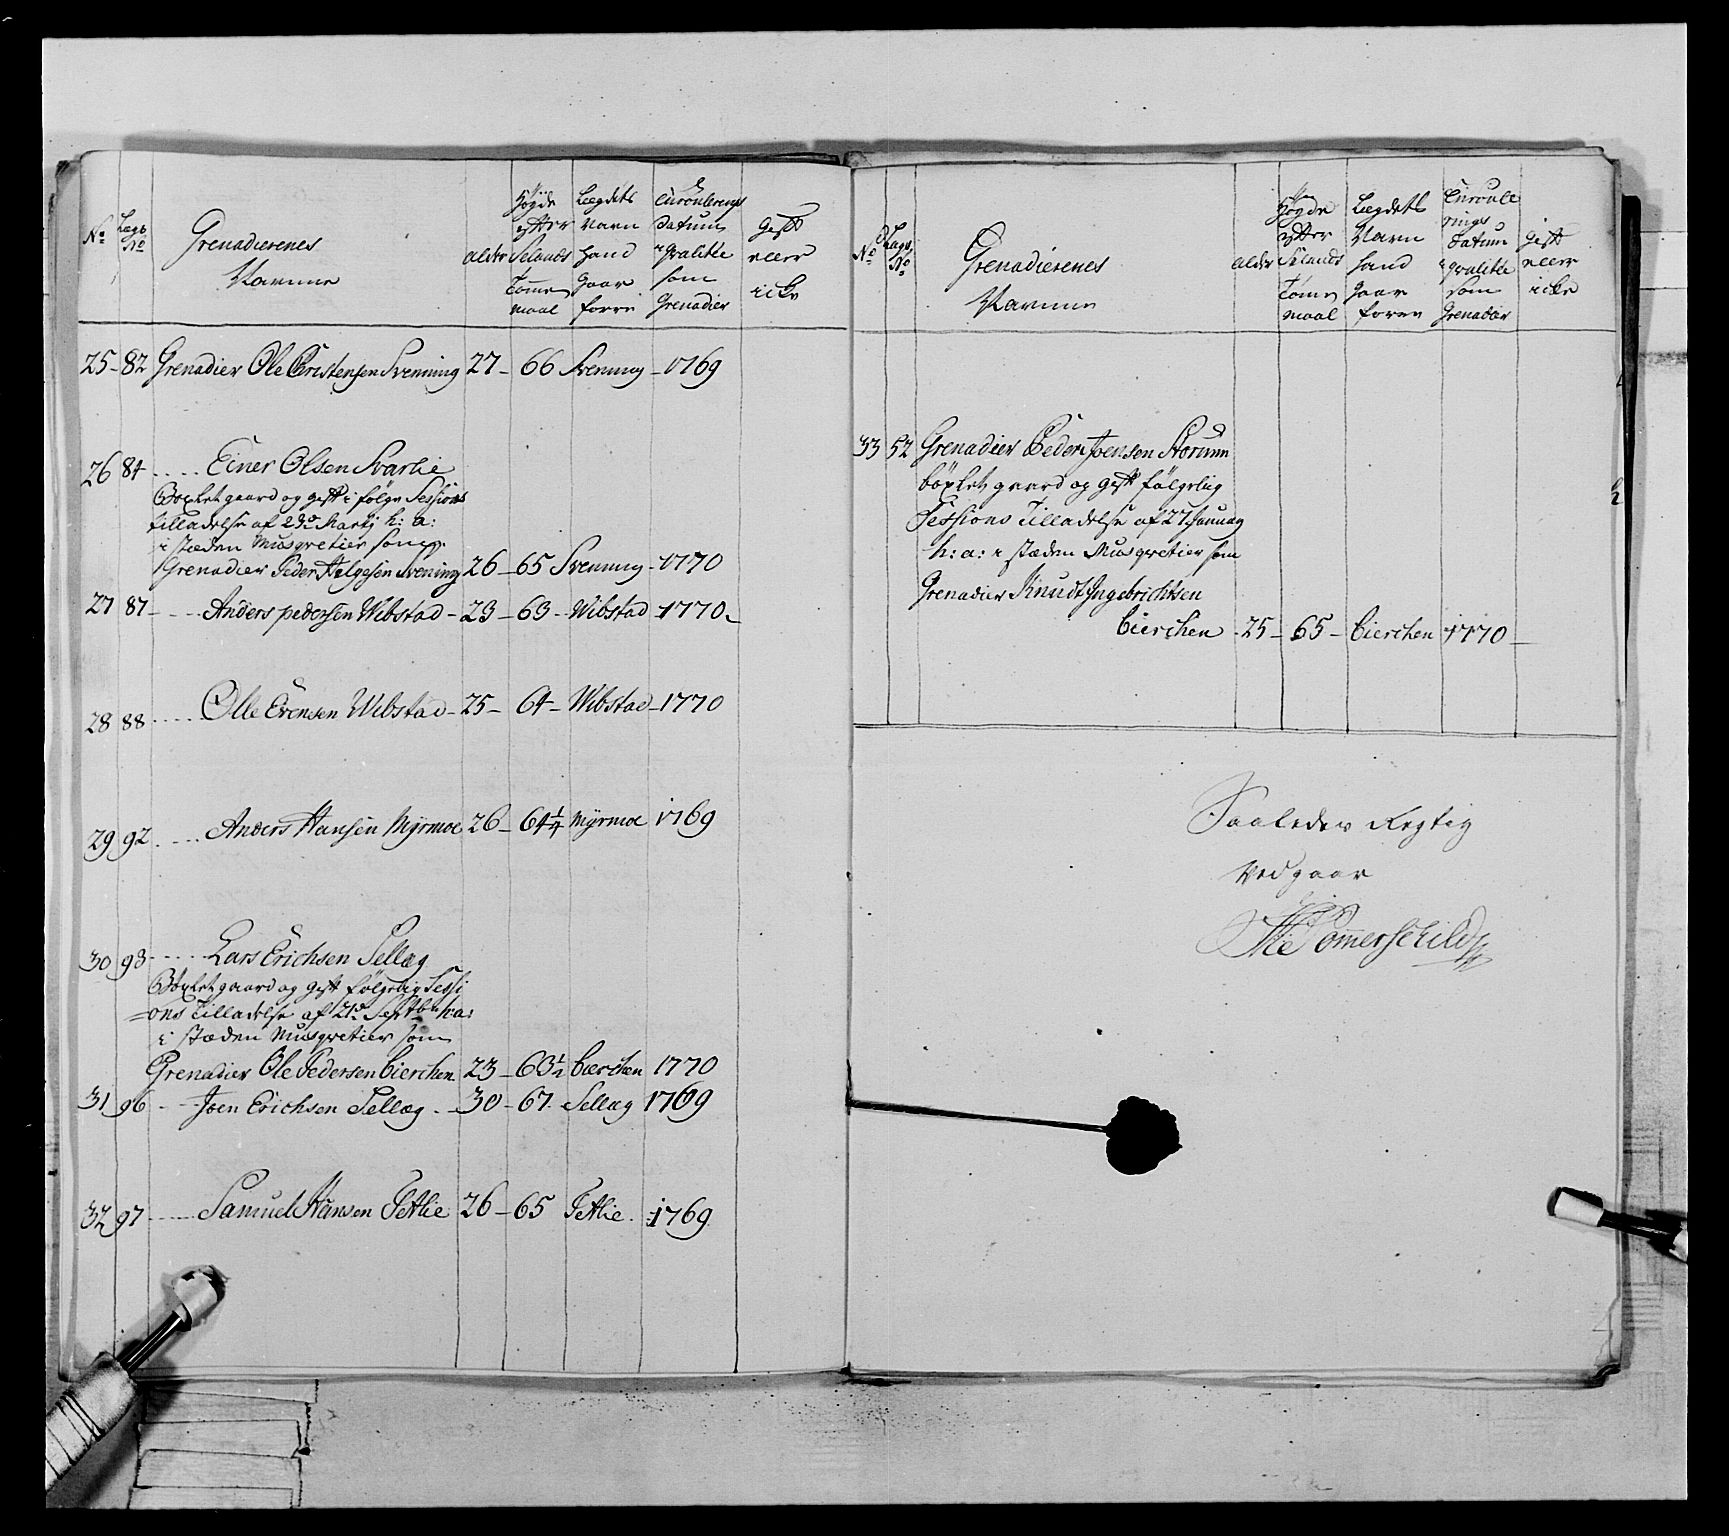 No
Legs No
Grenadierenes
Navnne
alder
Høyde
efter
Selands
Tomme
maal
Legdets
Navn
hand
gaar
forre
Enroulerings
Datum
i qvalitte
som
Grenadier
gift
eller
icke
25 - 82 Grenadier Ole Christensen Svenning 27 - 66 Svenning - 1769
26 84 Einer Olsen Svartie
Boxlet gaard og gift i følge Sessions
tilladelse af 23de Martj h: a:
i stæden Musqvetier som
Grenadier Peder Helgesen Svening 26 - 65 Svenning - 1770
27 87 - Anders pedersen Wibstad - 23 - 63 - Wibstad - 1770 -
28 88 Olle Evensen Wibstad - 25 - 64 - Wibstad - 1770
29 92 Anders Hansen Myrmoe 26 - 64 1/4 Myrmoe 1769
30 93 Lars Erichsen Sellæg
Boxlet gaard og gift følgelig Sessi
=ons Tilladelse af 21de Septbr h: a:
i stæden Musqvetier som
Grenadier Ole Pedersen Bierchen 23 - 63 1/2 Bierchen 1770
31 96 - Joen Erichsen Sellæg - 30 - 67 - Sellæg 1769
32 97 Samuel Hansen Tetlie 26 - 65 Tetlie - 1769
No
Lægs No
Grenadierenes
Navnne
alder
Høyde
efter
Selands
Tome
maal
Legdets
Navn
hand
gaar
forre
Enroule
rings
Datum
i qvalitte
som
Grenadær
gift
eller
icke
33 52 Grenadier Peder Joensen Storunn
böxlet gaard og gift følgelig
Sessions Tilladelse af 27 January
h: a: i stæden Musqvetier som
Grenadier Knudt Ingebrichtsen
Bierchen 25 - 65 - Bierchen 1770 -
Saaledes Rigtig
Vedgaar
Tomerschild